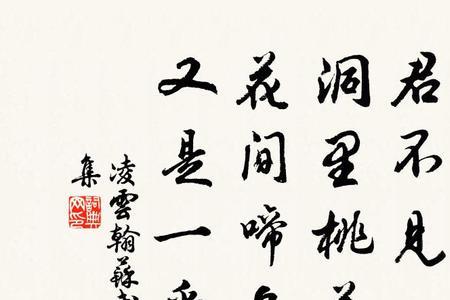 君不見
洞里桃
花间啼
又是一
凌雲翰蘇
集